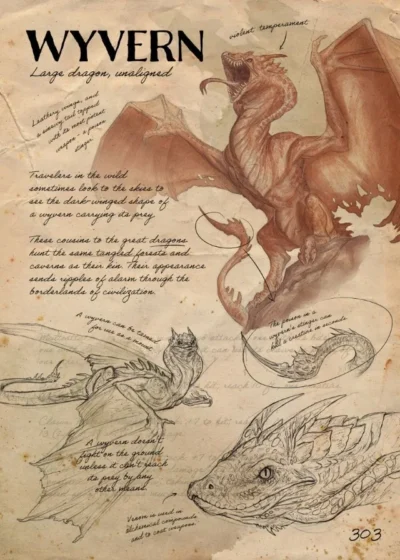 WYVERN
violent temperament
Large dragon, unaligned
Leathery wings, and
a sinewy tail tipped
with its most potent
weapon - a poison
stinger
Travelers in the wild
sometimes look to the skies to
see the dark-winged shape of
a wyvern carrying its prey.
These cousins to the great dragons
hunt the same tangled forests and
caverns as their kin. Their appearance
sends ripples of alarm through the
borderlands of civilization.
A wyvern can be tamed
for use as a mount
The poison in a
wyvern's stinger can
kill a creature in seconds
A wyvern doesn't
fight on the ground
unless it can't reach
its prey by any
other means.
Venom is used in
alchemical compounds
and to coat weapons.
303